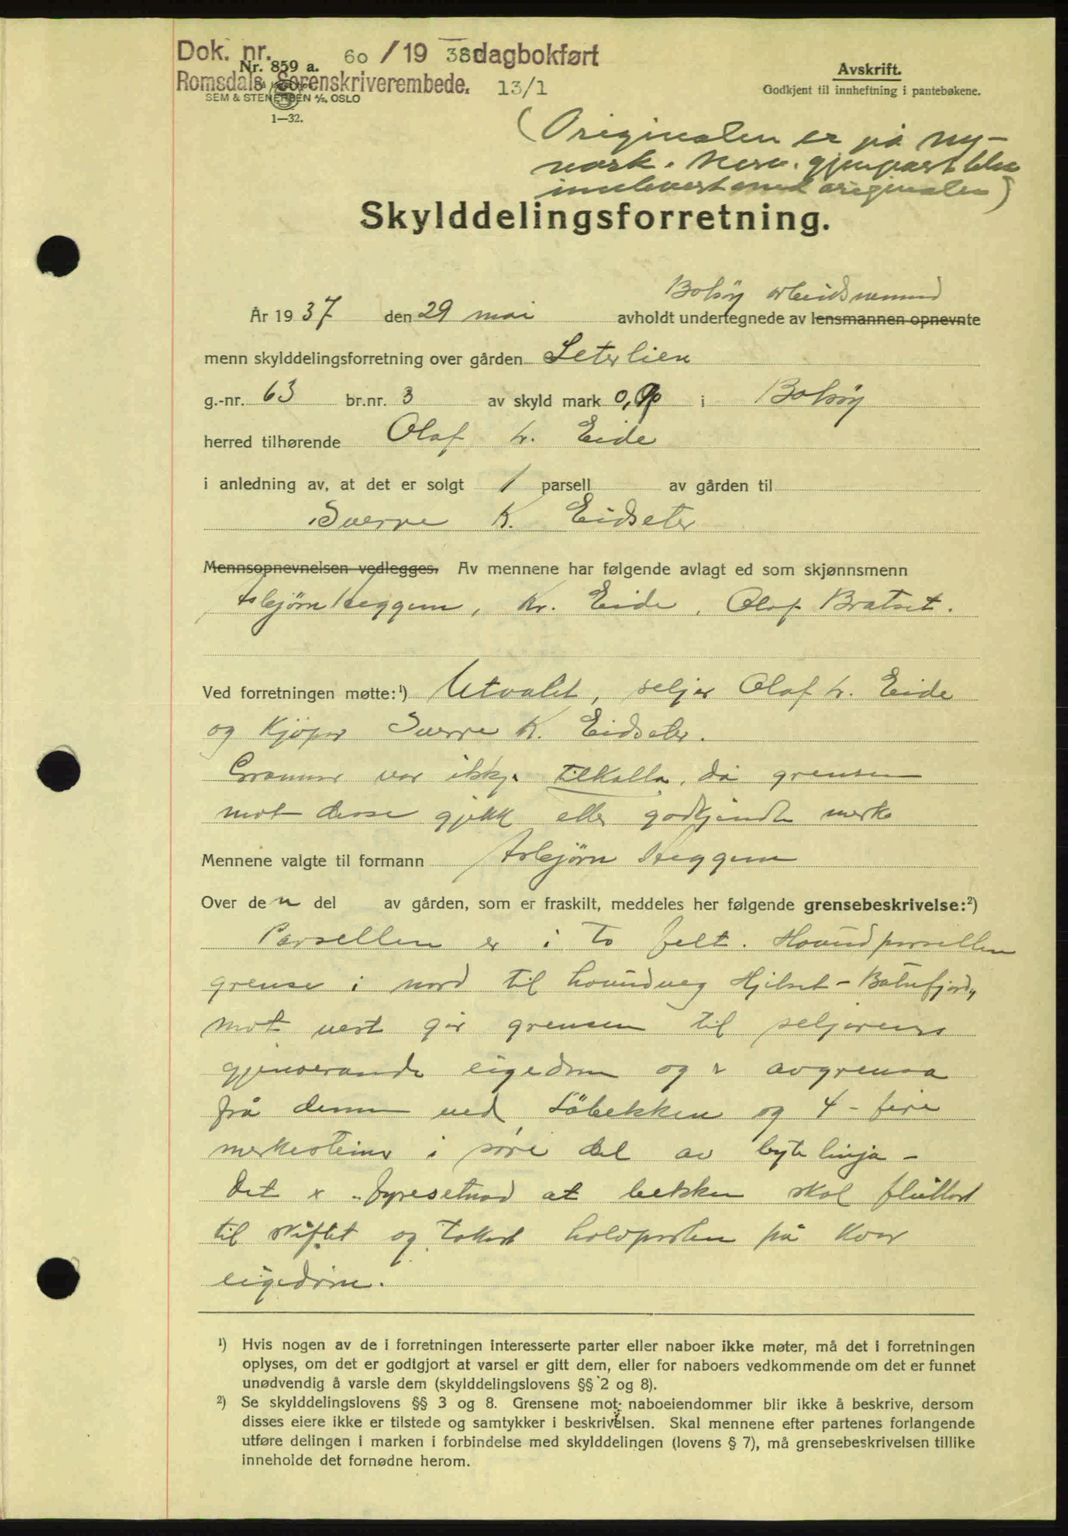 Dok. nr. 60 / 19 38 dagbokført
Nr. 859 a.
Romsdals Sorenskriverembede. 13/1
SEM & STENERSEN A/S, OSLO
1—32.
Avskrift.
Godkjent til innheftning i pantebøkene.
(Originalen er på ny-
norsk. gjenpart ble
innlevert med originalen)
Skylddelingsforretning.
Bolsøy arbeidsnemnd
År 1937 den 29 mai avholdt undertegnede av lensmannen opnevnte
menn skylddelingsforretning over gården Seterlien
g.-nr. 63 br.nr. 3 av skyld mark 0, i Bolsøy
herred tilhørende Olaf L. Eide
i anledning av, at det er solgt 1 parsell av gården til
Sverre K. Eidseter
Mennsopnevnelsen vedlegges. Av mennene har følgende avlagt ed som skjønnsmenn
Asbjørn Heggem, Kr. Eide, Olaf Bratset.
Ved forretningen møtte:¹) Utvalet, seljer Olaf L. Eide
og kjøper Sverre K. Eidseter.
Grannar var ikkje tilkalla, då grensen
mot desse gjekk etter godkjende merke
Mennene valgte til formann Asbjørn Heggem
Over den del av gården, som er fraskilt, meddeles her følgende grensebeskrivelse:²)
Parsellen er i to felt. Hovudparsellen
grense i nord til hovudveg Hjelset - Batnfjord,
mot vest går grensen til seljarens
gjenverande eigedom og er avgrensa
frå denne vedLøbekken og 4 - fire
merkesteiner i søre del av bytelinja -
Det er fyresetnad at bekken skal flyttast
til skiftet og takast halvparten på kvar
eigedom.
¹) Hvis nogen av de i forretningen interesserte parter eller naboer ikke møter, må det i forretningen
oplyses, om det er godtgjort at varsel er gitt dem, eller for naboers vedkommende om det er funnet
unødvendig å varsle dem (skylddelingslovens §§ 2 og 8).
²) Se skylddelingslovens §§ 3 og 8. Grensene mot naboeiendommer blir ikke å beskrive, dersom
disses eiere ikke er tilstede og samtykker i beskrivelsen. Skal mennene efter partenes forlangende
utføre delingen i marken i forbindelse med skylddelingen (lovens § 7), må grensebeskrivelsen tillike
inneholde det fornødne herom.